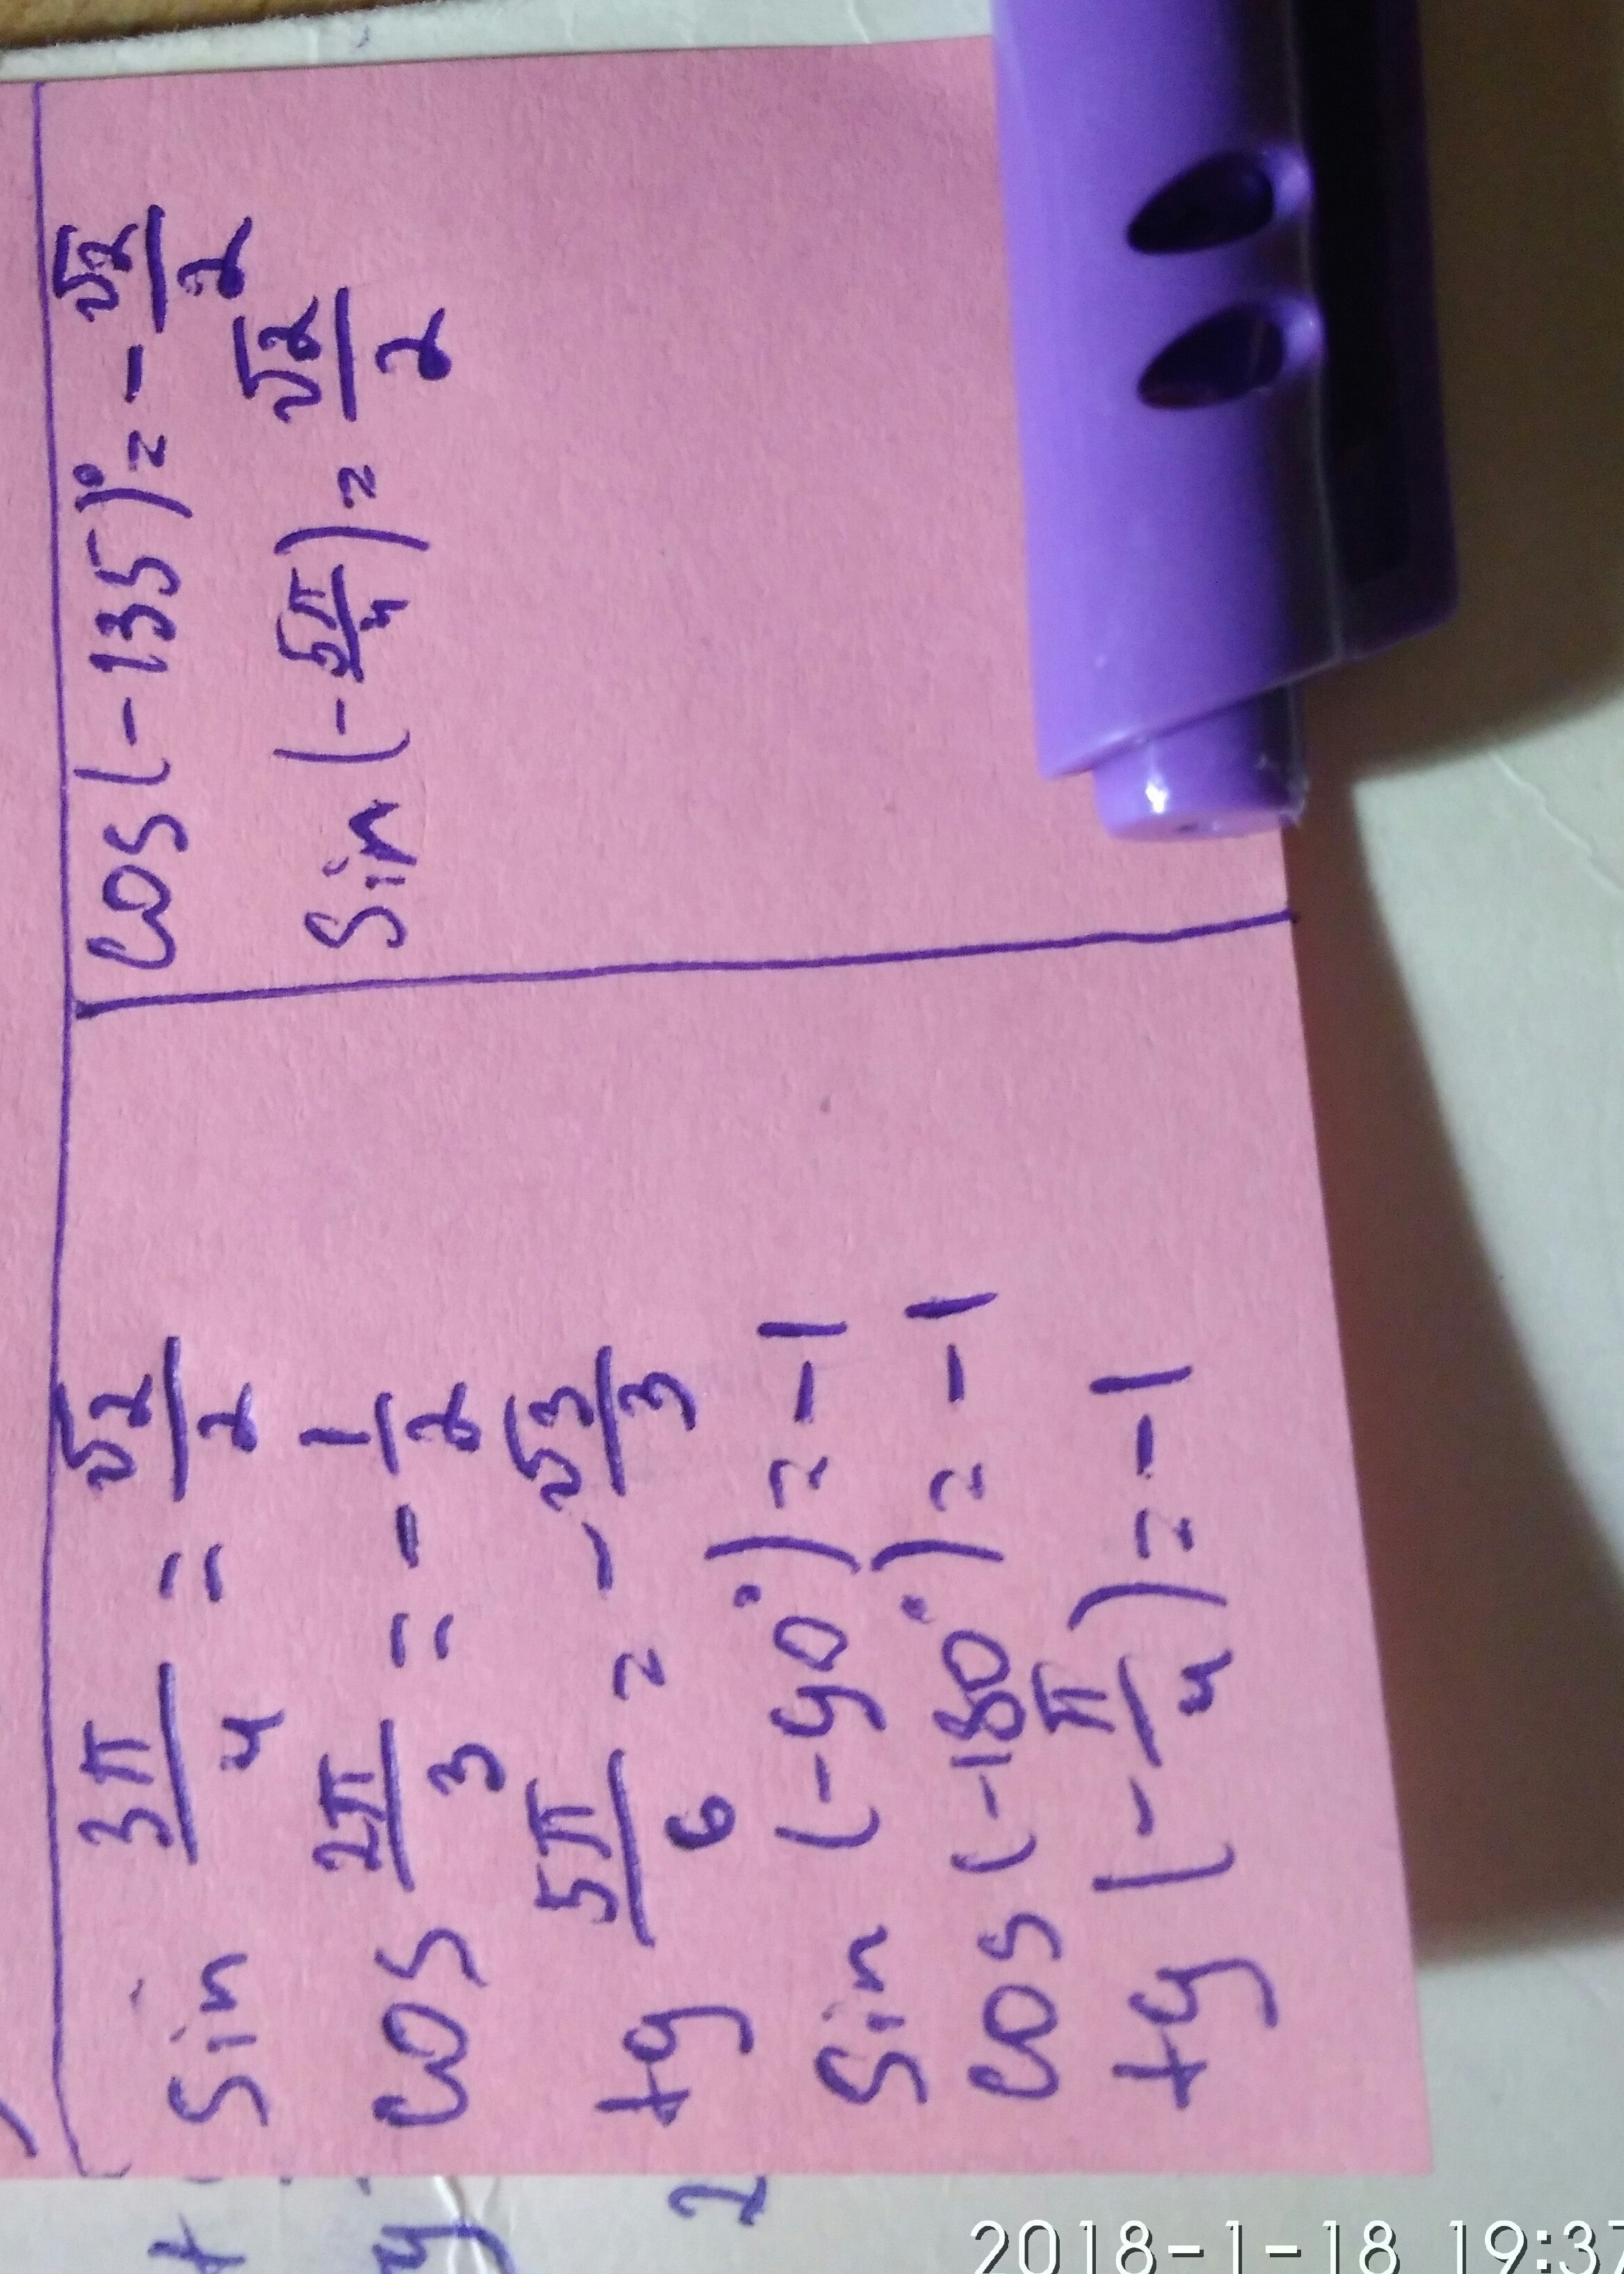 sin 3π/4 = √2/2
cos 2π/3 = - 1/2
tg 5π/6 = - √3/3
sin (-90°) = -1
cos (-180°) = -1
tg (-π/4) = -1
cos(-135)° = - √2/2
sin (-5π/4) = √2/2
2018-1-18 19:37